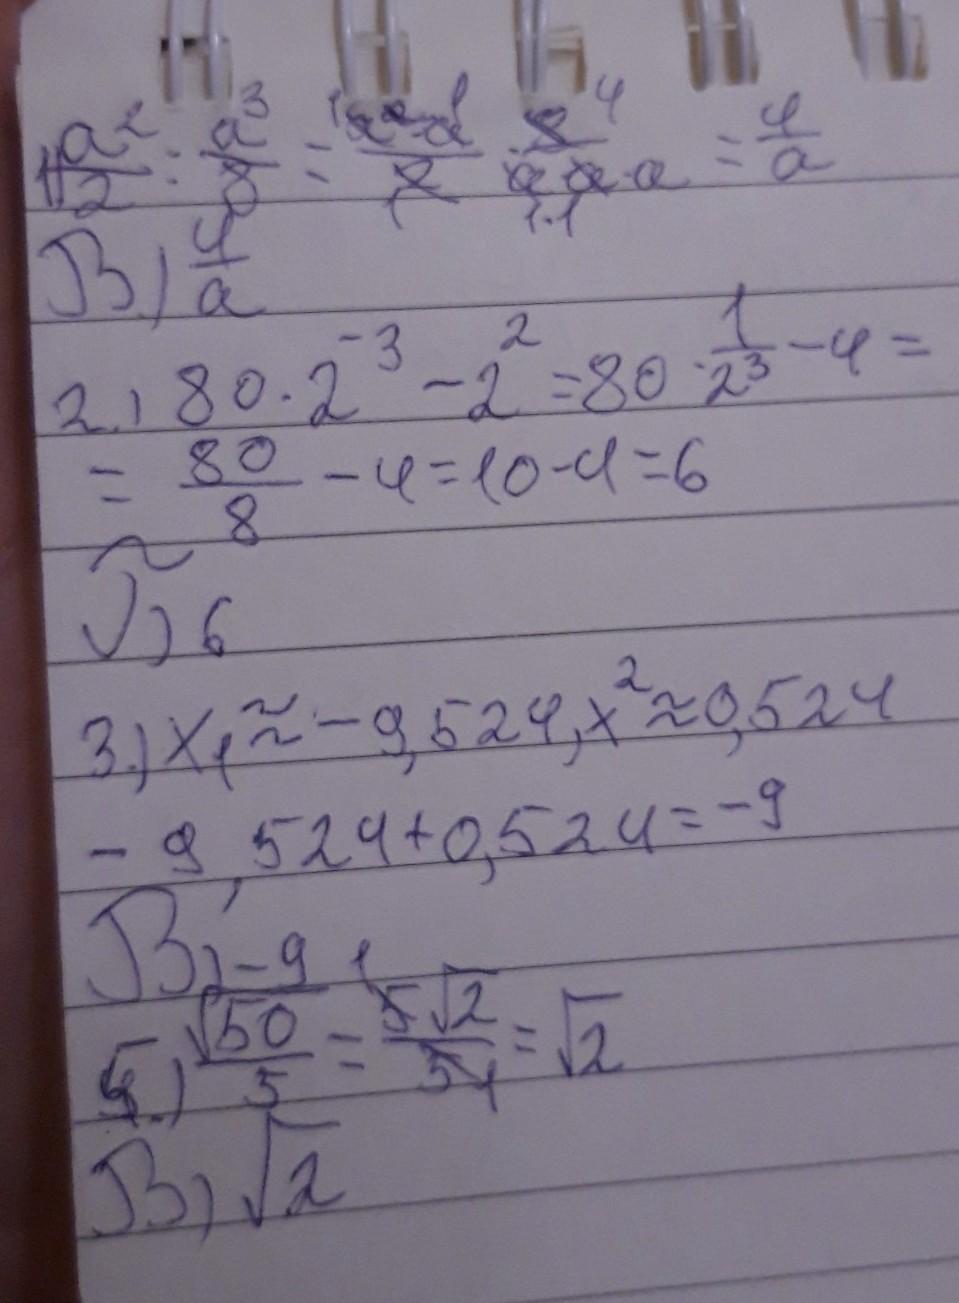 1) a²/2 : a³/8 = a·a/2 · 8/a·a·a = 4/a
В.) 4/a
2.) 80·2⁻³ - 2² = 80·1/2³ - 4 =
= 80/8 - 4 = 10 - 4 = 6
Г) 6
3.) x₁ ≈ -9,524, x² ≈ 0,524
-9,524 + 0,524 = -9
В) -9
5.) √50/5 = 5√2/5 = √2
В) √2